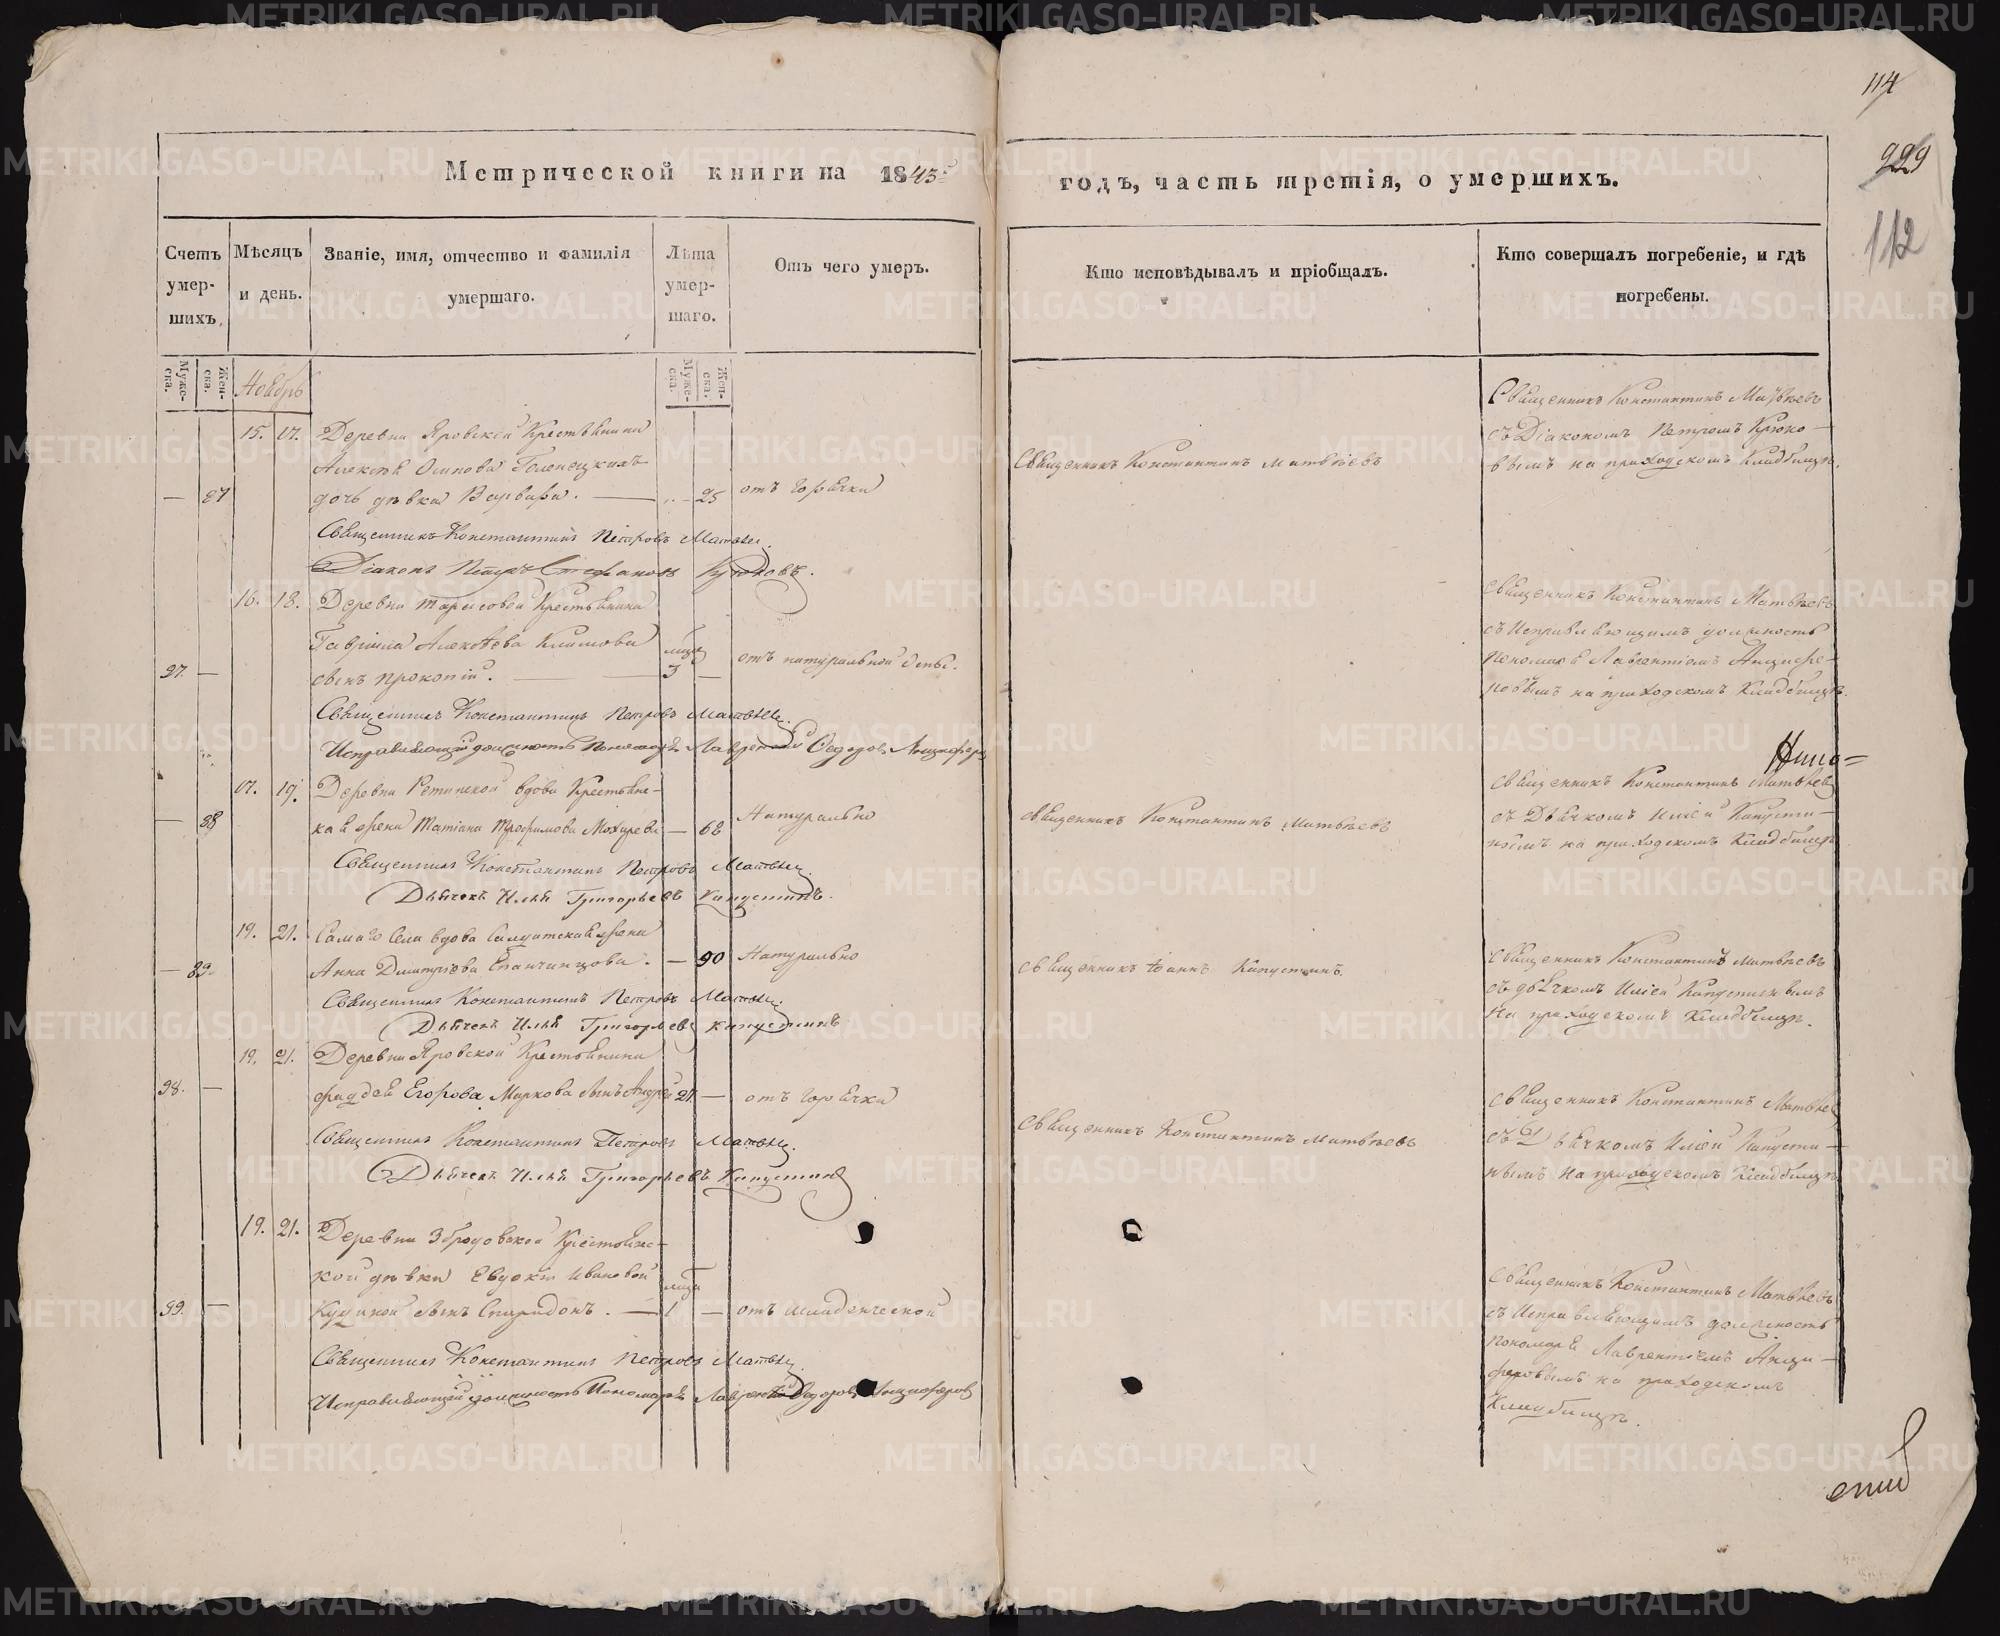 114
229
112
Метрической книги на 1843й
годъ, часть третія, о умершихъ.
Счетъ умер-шихъ.
Мѣсяцъ и день.
Званіе, имя, отчество и фамилія умершаго.
Лѣта умер-шаго.
Отъ чего умеръ.
Кто исповѣдывалъ и пріобщалъ.
Кто совершалъ погребеніе, и гдѣ погребены.
Муже-ска.
Жен-ска.
Ноябрь
Муже-ска.
Жен-ска.
15. 17. Деревни Яровской Крестьянина
Алексѣя Осипова
— 87 дочь дѣвка Варвара. — 25 отъ горячки
Священникъ Константинъ Матвѣевъ
Священникъ Константинъ Матвѣевъ
съ Діакономъ Петромъ Крюко-
вымъ на приходскомъ Кладбищѣ.
Священникъ Константинъ Петровъ Матвѣевъ.
Діаконъ Петръ Стефановъ Крюковъ.
16. 18. Деревни Тарасовой Крестьянина
Гавріила Алексѣева Климова мѣся
97. — сынъ Прокопій. — 3 — отъ натуральной оспы.
Священникъ Константинъ Матвѣевъ
съ Исправляющимъ должность
Пономаря Лаврентіемъ Анцифе-
ровымъ на приходскомъ Кладбищѣ.
Священникъ Константинъ Петровъ Матвѣевъ.
Исправляющій должность Пономаря Лаврентій Федоровъ Анциферовъ
17. 19. Деревни Ретинской вдова Крестьянс-
— 88 кая жена Татіана Трофимова Мохирева — 62 Натурально
Священникъ Константинъ Матвѣевъ
Священникъ Константинъ Матвѣевъ
съ Дьячкомъ Иліей Капусти-
нымъ на приходскомъ Кладбищѣ
Священникъ Константинъ Петровъ Матвѣевъ.
Дьячекъ Илья Григорьевъ Капустинъ.
19. 21. Самаго Села вдова Салдатская жена
— 89. Анна Дмитріева Епанчинцова. — 90 Натурально
Священникъ Іоаннъ Капустинъ.
Священникъ Константинъ Матвѣевъ
съ дьячкомъ Иліей Капустинымъ
на приходскомъ Кладбищѣ.
Священникъ Константинъ Петровъ Матвѣевъ.
Дьячекъ Илья Григорьевъ Капустинъ
19. 21. Деревни Яровской Крестьянина
98. — Фаддея Егорова Маркова сынъ Андрей 21 — отъ горячки
Священникъ Константинъ Матвѣевъ
Священникъ Константинъ Матвѣевъ
съ Дьячкомъ Иліей Капусти-
нымъ на приходскомъ Кладбищѣ
Священникъ Константинъ Петровъ Матвѣевъ.
Дьячекъ Илья Григорьевъ Капустинъ
19. 21. Деревни Збродовской Крестьянс-
кой дѣвки Евдокіи Ивановой мѣся
99. — сынъ Спиридонъ. — 1 — отъ младенческой
Священникъ Константинъ Матвѣевъ
съ Исправляющимъ должность
Пономаря Лаврентіемъ Анци-
феровымъ на приходскомъ
Кладбищѣ.
Священникъ Константинъ Петровъ Матвѣевъ.
Исправляющій должность Пономаря Лаврентій Федоровъ Анциферовъ
METRIKI.GASO-URAL.RU